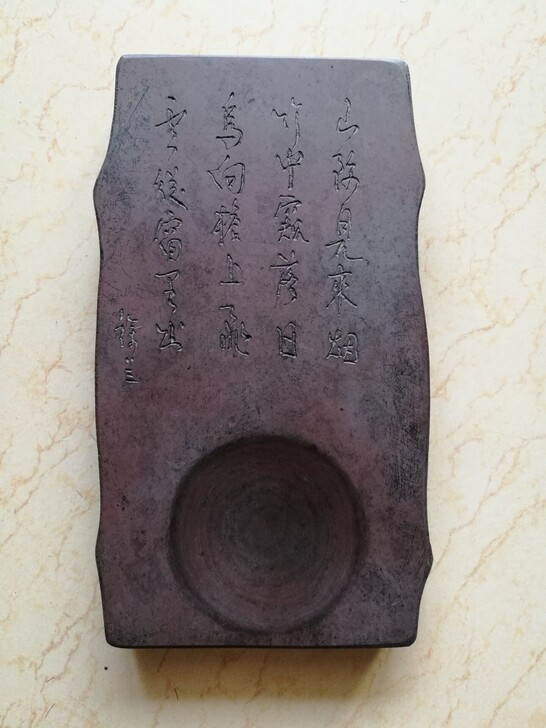 山際見來烟
竹中窺落日
鳥向檐上飛
雲從窗里出